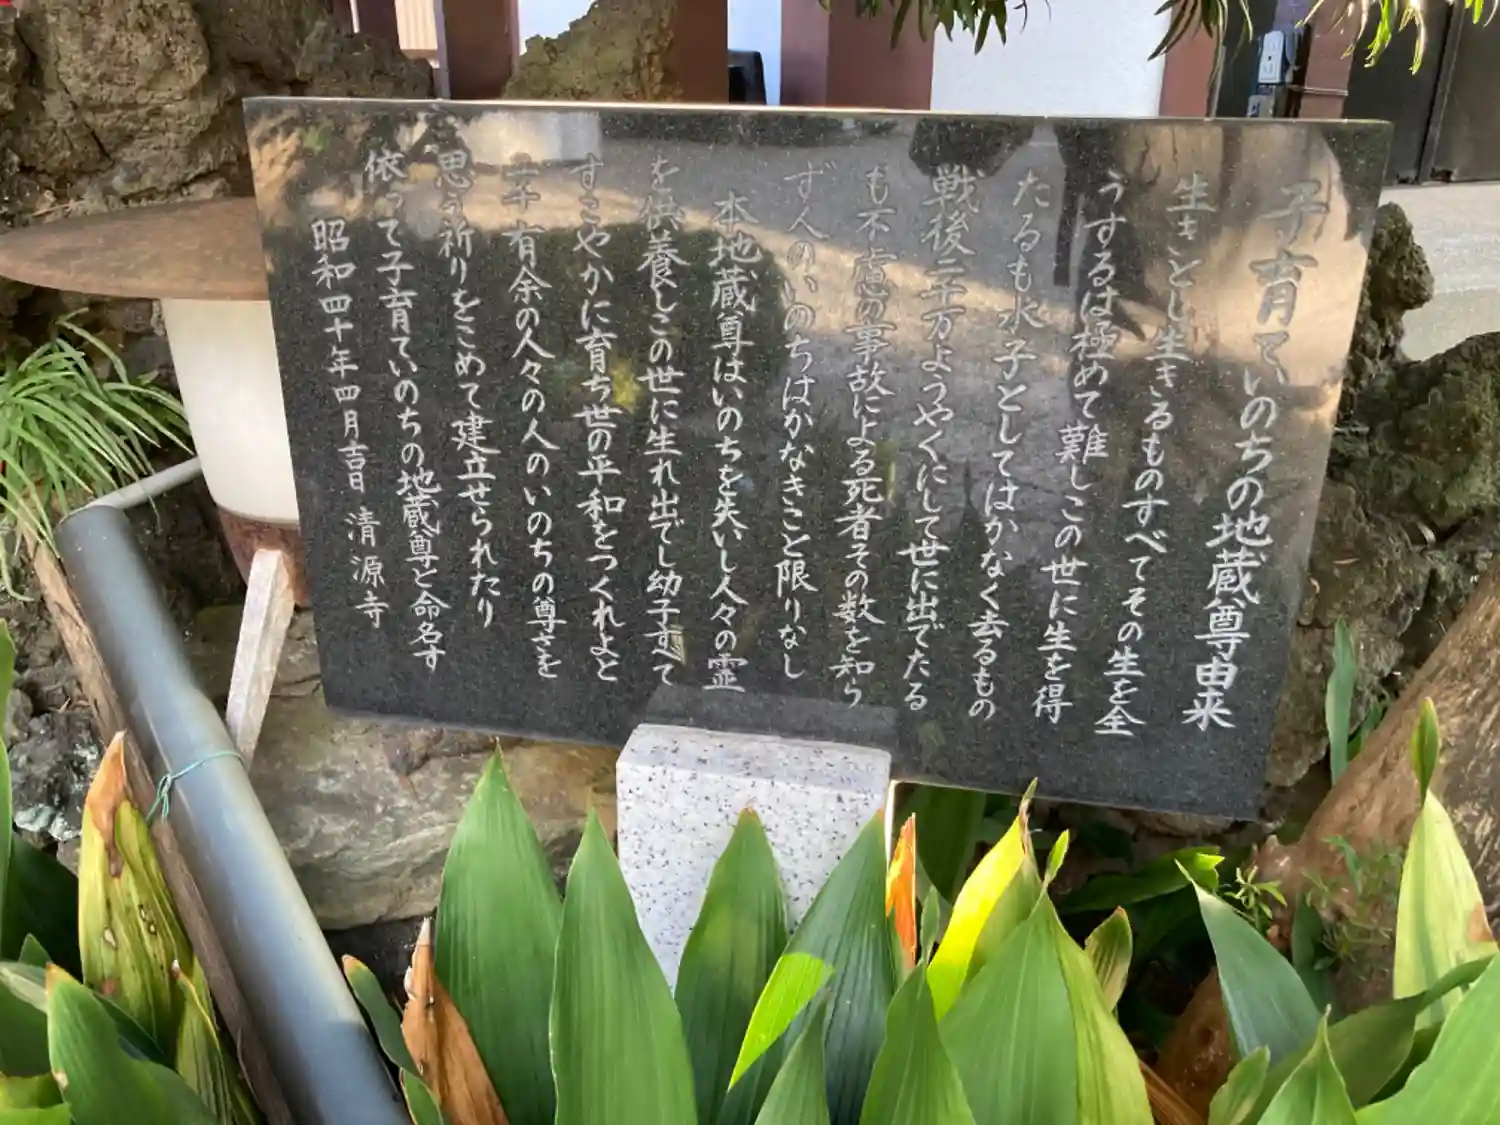 子育ていのちの地蔵尊由来
生きとし生きるものすべてその生を全
うするは極めて難しこの世に生を得
たるも水子としてはかなく去るもの
戦後二千万ようやくにして世に出でたる
も不慮の事故による死者その数を知ら
ず人のいのちはかなきこと限りなし
本地蔵尊はいのちを失いし人々の霊
を供養しこの世に生れ出でし幼子すべて
すこやかに育ち世の平和をつくれよと
二千有余の人々の人のいのちの尊さを
思う祈りをこめて建立せられたり
依って子育ていのちの地蔵尊と命名す
昭和四十年四月吉日 清源寺